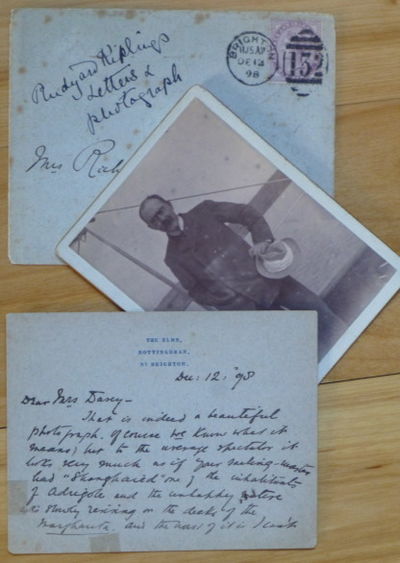 Rudyard Kiplings
Letters &
photograph
Mrs
BRIGHTON
DE 12
98
152
THE ELMS,
ROTTINGDEAN,
Nr BRIGHTON.
Dec: 12. '98
Dear Mrs Davey–
That is indeed a beautiful
photograph. Of course we know what it
means; but to the average spectator it
looks very much as if your sailing-master
had "Shanghaied" one of the inhabitants
of and the unhappy
is slowly reviving on the deck of the
Margharita. and the worst of it is I can't